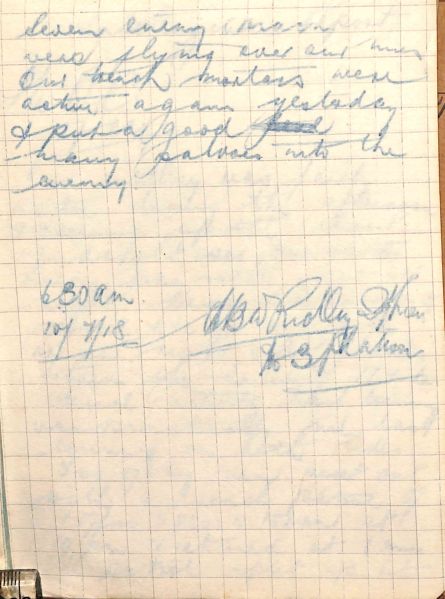 Seven enemy
were flying over our lines
Our trench mortars were
active again yesterday
& put a good
many salvoes into the
enemy
6.30 am
10/7/18
Ridley
No 3 platoon